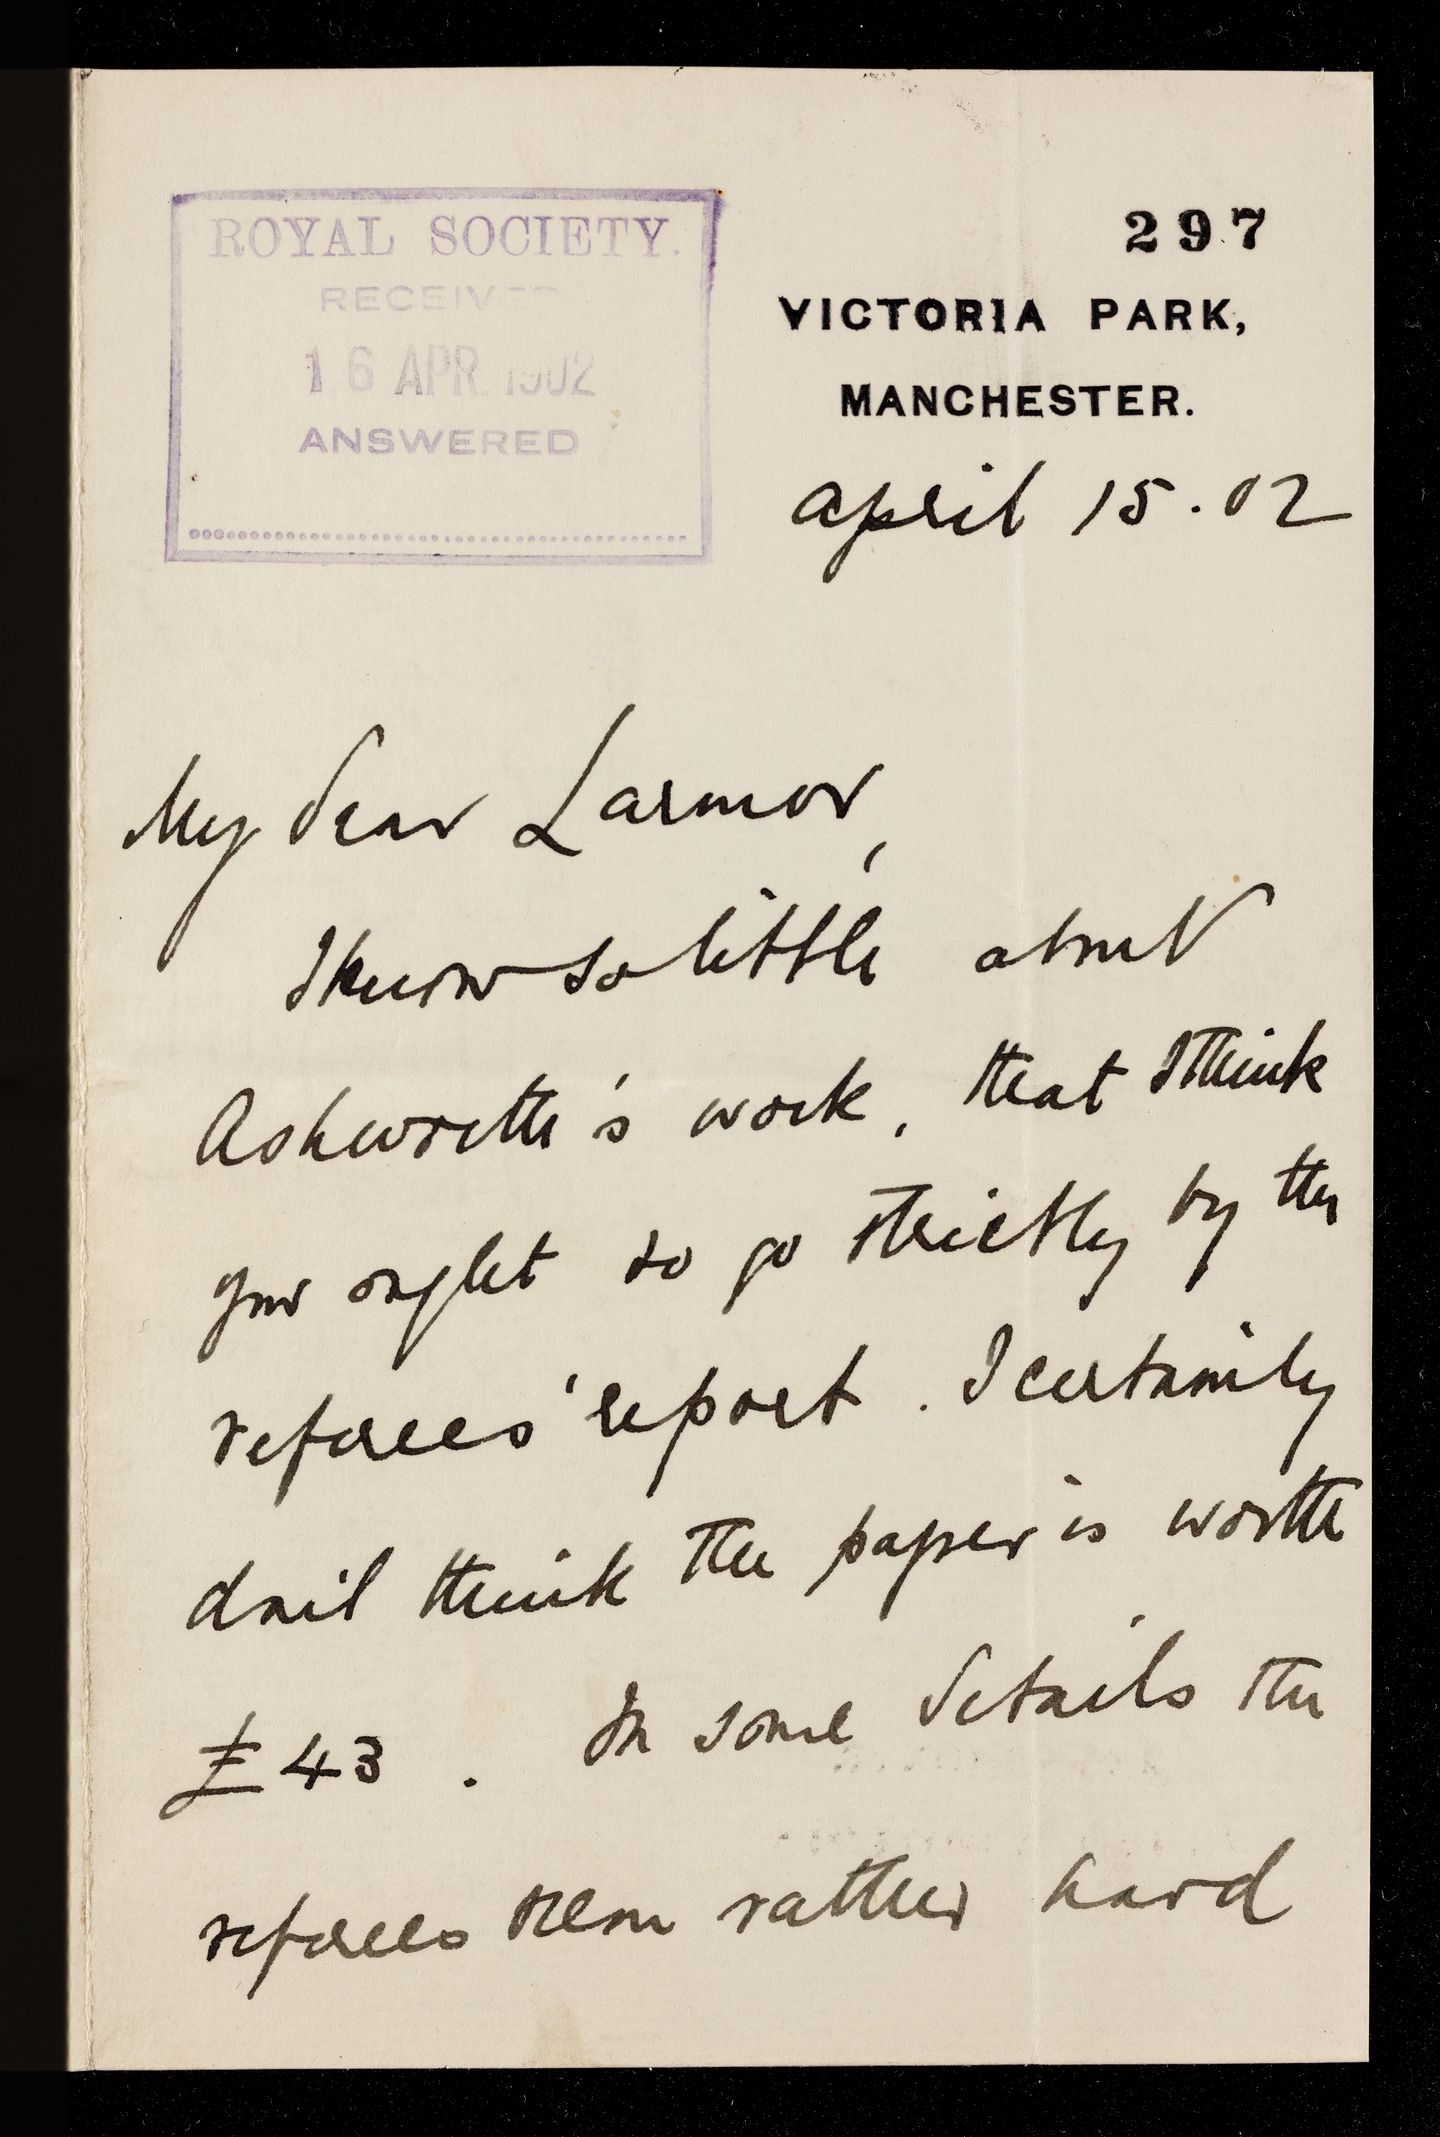 ROYAL SOCIETY.
RECEIVED
16 APR. 1902
ANSWERED
297
VICTORIA PARK,
MANCHESTER.
April 15. 02
My dear Larmor,
I know so little about
Ashworth's work, that I think
you ought to go strictly by the
referees' report. I certainly
don't think the paper is worth
£43. In some details the
referees seem rather hard